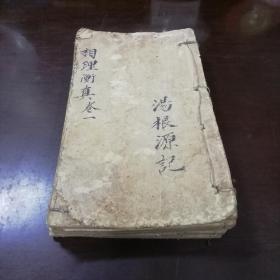 相理衡真卷一
湯根源記